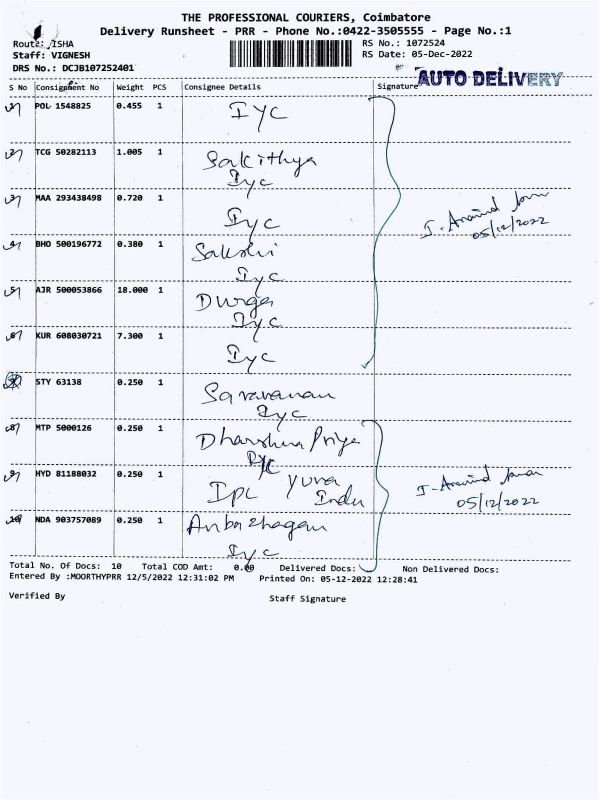 THE PROFESSIONAL COURIERS, Coimbatore
Delivery Runsheet - PRR - Phone No.:0422-3505555 - Page No.:1
Route: ISHA
RS No.: 1072524
Staff: VIGNESH
RS Date: 05-Dec-2022
DRS No.: DCJB107252401
AUTO DELIVERY
S No Consignment No Weight PCS Consignee Details Signature
1 POL 1548825 0.455 1 IYC
2 TCG 50282113 1.005 1 Sakithya
Iyc
3 MAA 293438498 0.720 1 Iyc
J. Aravind
05/12/2022
4 BHO 500196772 0.380 1 Sakshi
Iyc
5 AJR 500053866 18.000 1 Durga
Iyc
6 KUR 608030721 7.300 1 Iyc
STY 63138 0.250 1 Saravanan
Iyc
8 MTP 5000126 0.250 1 Dharshna Priya
Iyc
9 HYD 81188032 0.250 1 Ipc Yuva
Indu
J. Aravind
05/12/2022
10 NDA 903757089 0.250 1 Anbazhagan
Iyc
Total No. Of Docs: 10 Total COD Amt: 0.00 Delivered Docs: Non Delivered Docs:
Entered By :MOORTHYPRR 12/5/2022 12:31:02 PM Printed On: 05-12-2022 12:28:41
Verified By Staff Signature